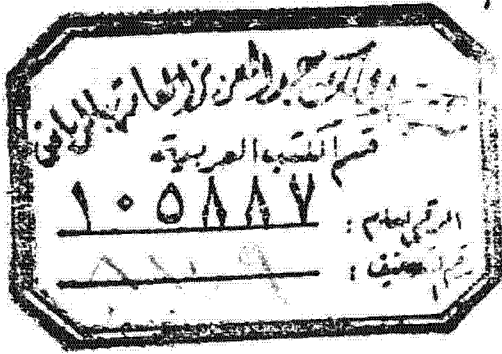 مكتبة الملك عبد العزيز العامة بالرياض
قسم الكتب العربية
الرقم العام : ١٠٥٨٨٧
رقم التصنيف :